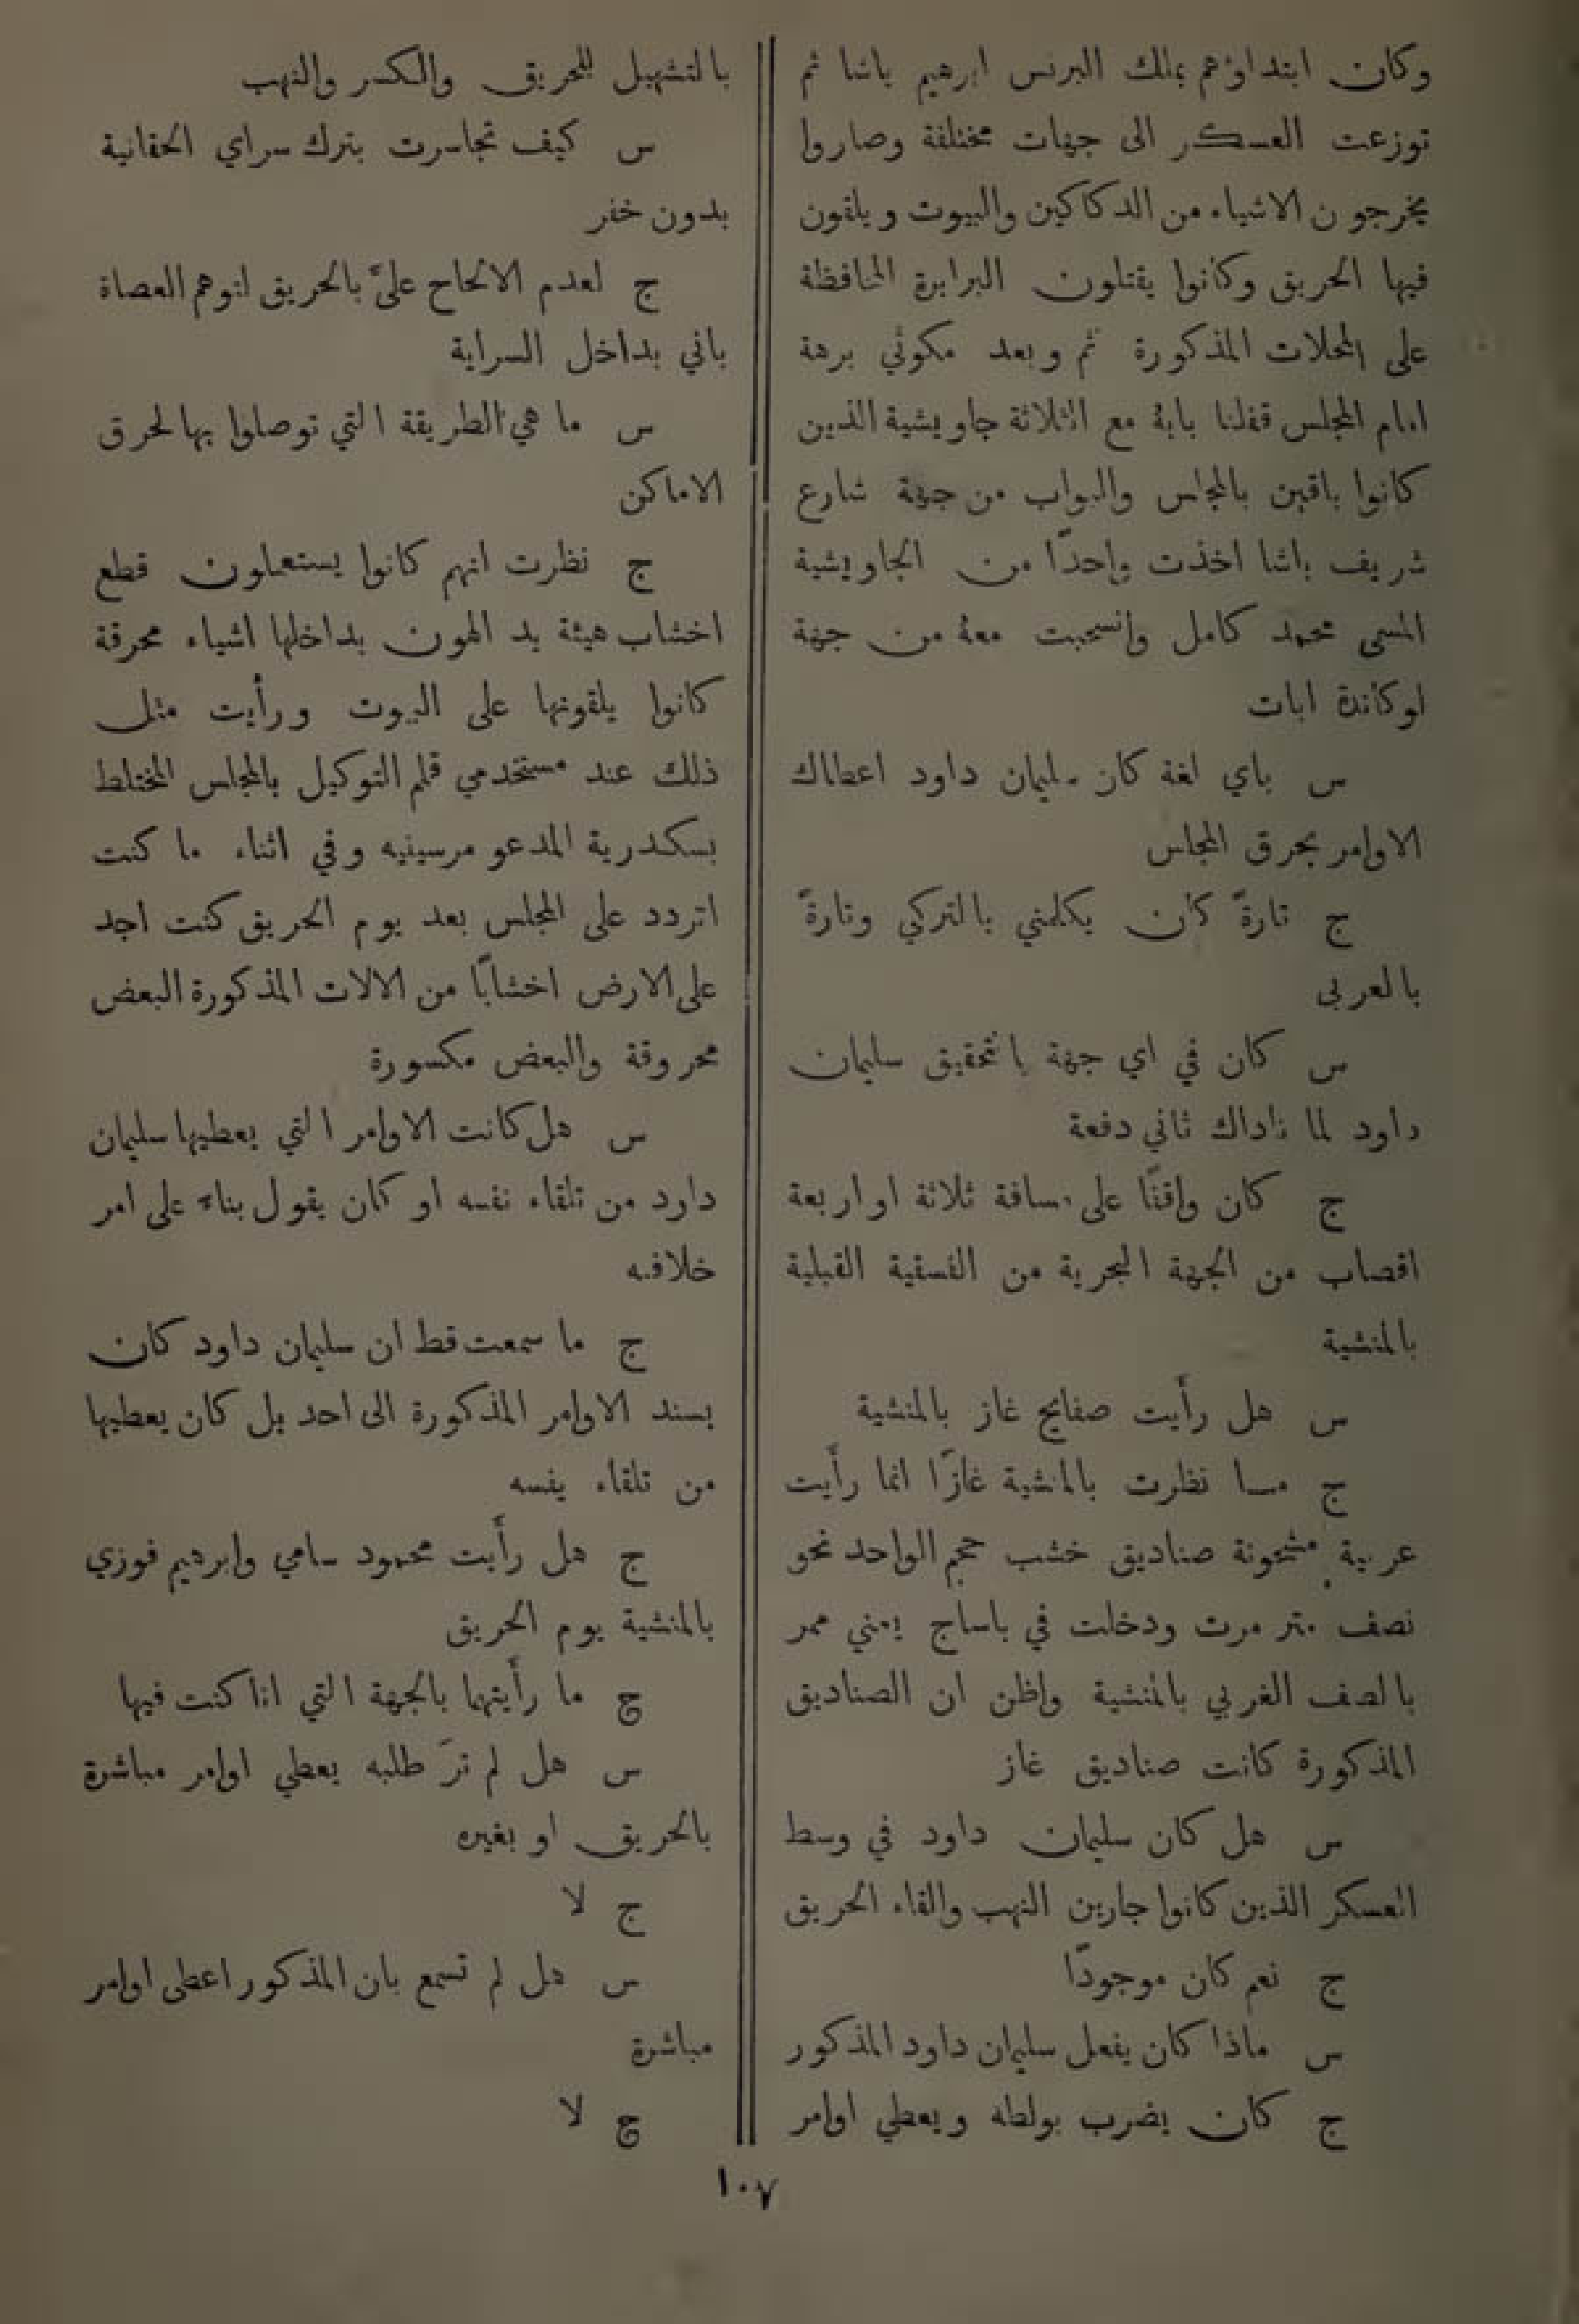 وكان ابتداؤهم بملك البرنس ابرهيم باشا ثم
توزعت العسكر الى جهات مختلفة وصاروا
يخرجون الاشياء من الدكاكين والبيوت ويلقون
فيها الحريق وكانوا يقتلون البرابرة المحافظة
على المحلات المذكورة ثم وبعد مكوثي برهة
امام المجلس قفلنا بابهُ مع الثلاثة جاويشية الذين
كانوا باقين بالمجلس والبواب من جهة شارع
شريف باشا اخذت واحدًا من الجاويشية
المسمى محمد كامل وانسحبت معهُ من جهة
لوكاندة ابات
س باي لغة كان سليمان داود اعطاك
الاوامر بحرق المجلس
ج تارةً كان يكلمني بالتركي وتارةً
بالعربي
س كان في اي جهة بالتحقيق سليمان
داود لما ناداك ثاني دفعة
ج كان واقفًا على مسافة ثلاثة او اربعة
اقصاب من الجهة البحرية من الفسقية القبلية
بالمنشية
س هل رأيت صفايح غاز بالمنشية
ج ما نظرت بالمنشية غازًا انما رأيت
عربية مشحونة صناديق خشب حجم الواحد نحو
نصف متر مرت ودخلت في باساج يعني ممر
بالصف الغربي بالمنشية واظن ان الصناديق
المذكورة كانت صناديق غاز
س هل كان سليمان داود في وسط
العسكر الذين كانوا جارين النهب والقاء الحريق
ج نعم كان موجودًا
س ماذا كان يفعل سليمان داود المذكور
ج كان يضرب بولطه ويعطي اوامر
بالتشهيل للحريق والكسر والنهب
س كيف تجاسرت بترك سراي الحقانية
بدون خفر
ج لعدم الالحاح عليَّ بالحريق لتوهم العصاة
باني بداخل السراية
س ما هي الطريقة التي توصلوا بها لحرق
الاماكن
ج نظرت انهم كانوا يستعملون قطع
اخشاب هيئة يد الهون بداخلها اشياء محرقة
كانوا يلقونها على البيوت ورأيت مثل
ذلك عند مستخدمي قلم التوكيل بالمجلس المختلط
بسكندرية المدعو مرسينيه وفي اثناء ما كنت
اتردد على المجلس بعد يوم الحريق كنت اجد
على الارض اخشابًا من الالات المذكورة البعض
محروقة والبعض مكسورة
س هل كانت الاوامر التي يعطيها سليمان
داود من تلقاء نفسه او كان يقول بناءً على امر
خلافه
ج ما سمعت قط ان سليمان داود كان
يسند الاوامر المذكورة الى احد بل كان يعطيها
من تلقاء يفسه
ج هل رأيت محمود سامي وابرهيم فوزي
بالمنشية يوم الحريق
ج ما رأيتهما بالجهة التي انا كنت فيها
س هل لم ترَ طلبه يعطي اوامر مباشرة
بالحريق او بغيره
ج لا
س هل لم تسمع بان المذكور اعطى اوامر
مباشرة
ج لا
١٠٧